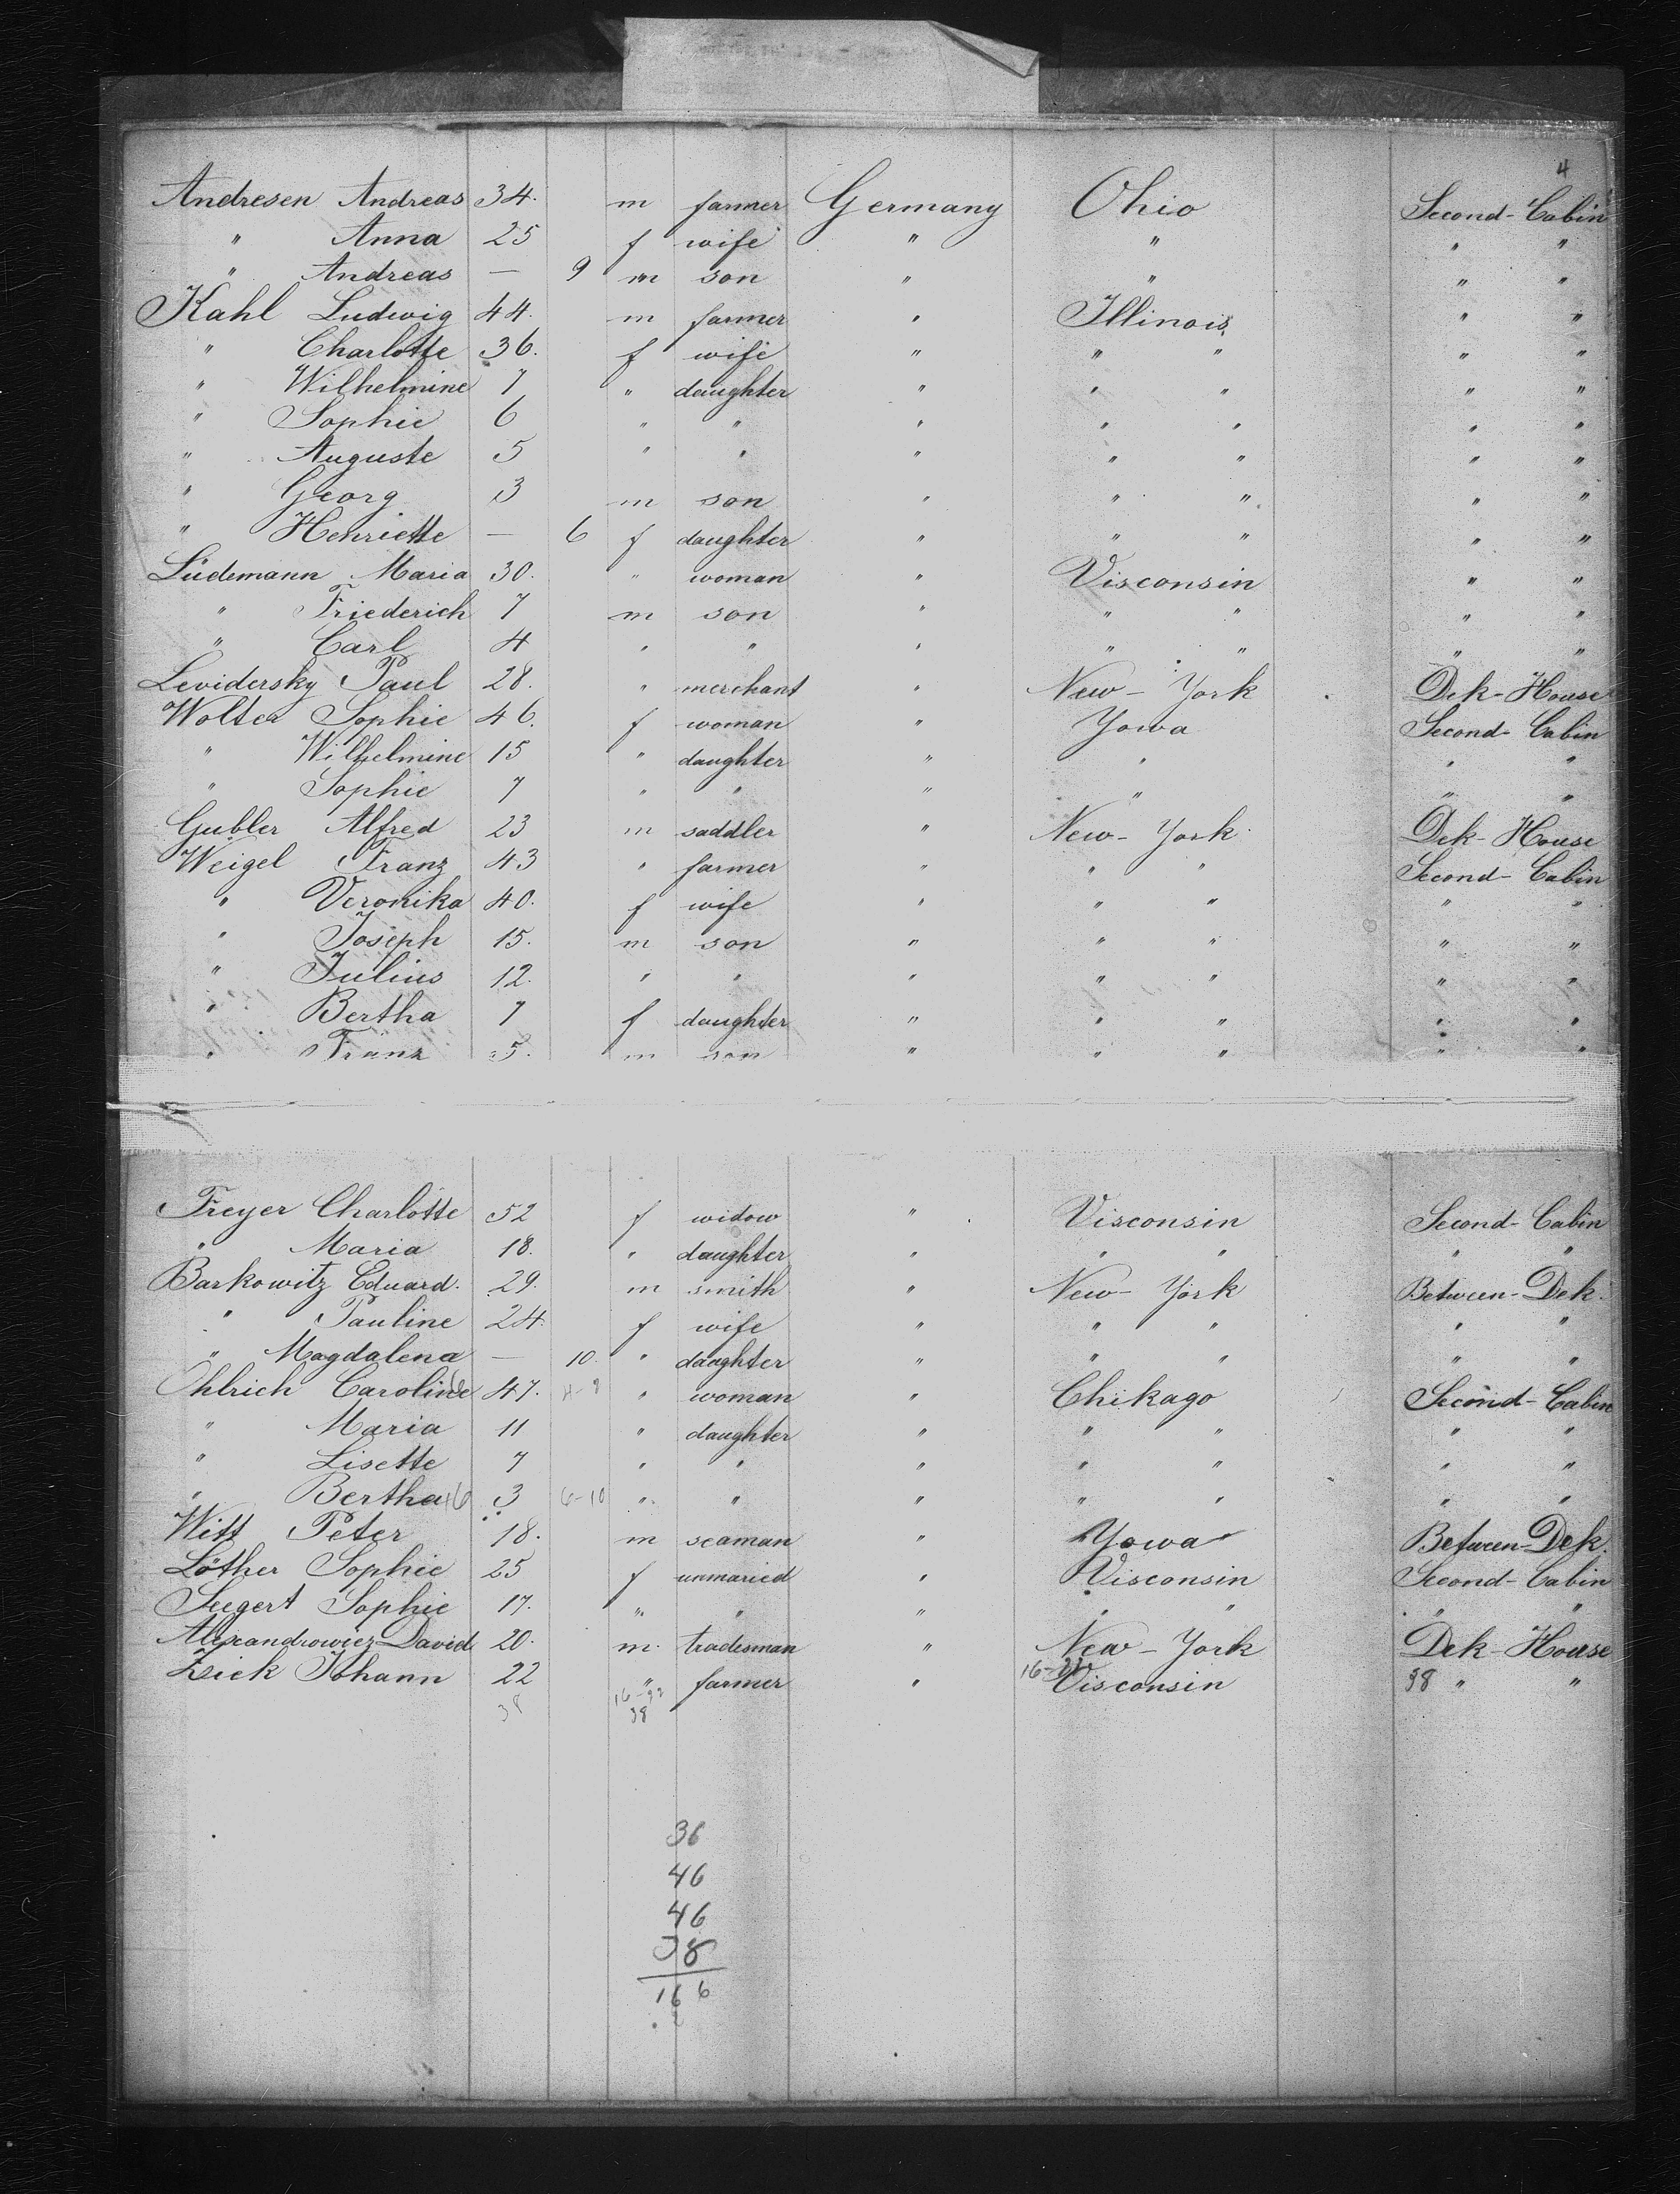 4
Andresen Andreas 34. m farmer Germany Ohio Second-Cabin
" Anna 25 f wife " " " "
" Andreas — 9 m son " " " "
Kahl Ludwig 44. m farmer " Illinois " "
" Charlotte 36. f wife " " " " "
" Wilhelmine 7 " daughter " " " " "
" Sophie 6 " " " " " " "
" Auguste 5 " " " " " " "
" Georg 3 m son " " " " "
" Henriette — 6 f daughter " " " " "
Lüdemann Maria 30. " woman " Visconsin " "
" Friederich 7 m son " " " " "
" Carl 4 " " " " " " "
Levidersky Paul 28. " merchant " New-York Dek-House
Wolter Sophie 46. f woman " Yowa Second-Cabin
" Wilhelmine 15 " daughter " " " "
" Sophie 7 " " " " " "
Gubler Alfred 23 m saddler " New-York Dek-House
Weigel Franz 43 " farmer " " " Second-Cabin
" Veronika 40. f wife " " " " "
" Joseph 15. m son " " " " "
" Julius 12. " " " " " " "
" Bertha 7 f daughter " " " " "
" Franz 5. m son " " " " "
Freyer Charlotte 52 f widow " Visconsin Second-Cabin
" Maria 18. " daughter " " " " "
Barkowitz Eduard. 29. m smith " New-York Between-Dek.
" Pauline 24. f wife " " " " "
" Magdalena — 10. " daughter " " " " "
Ohlrich Caroline 47. 4-8 " woman " Chikago Second-Cabin
" Maria 11 " daughter " " " " "
" Lisette 7 " " " " " " "
" Bertha 3 6-10 " " " " " " "
Witt Peter 18. m seaman " Yowa Between-Dek.
Löther Sophie 25 f unmaried " Visconsin Second-Cabin
Seegert Sophie 17. " " " " " " "
Alexandrowicz David 20. m. tradesman " New-York Dek-House
Zick Johann 22 " farmer " Visconsin 38 " "
38 16-22 16-22
38
36
46
46
38
166